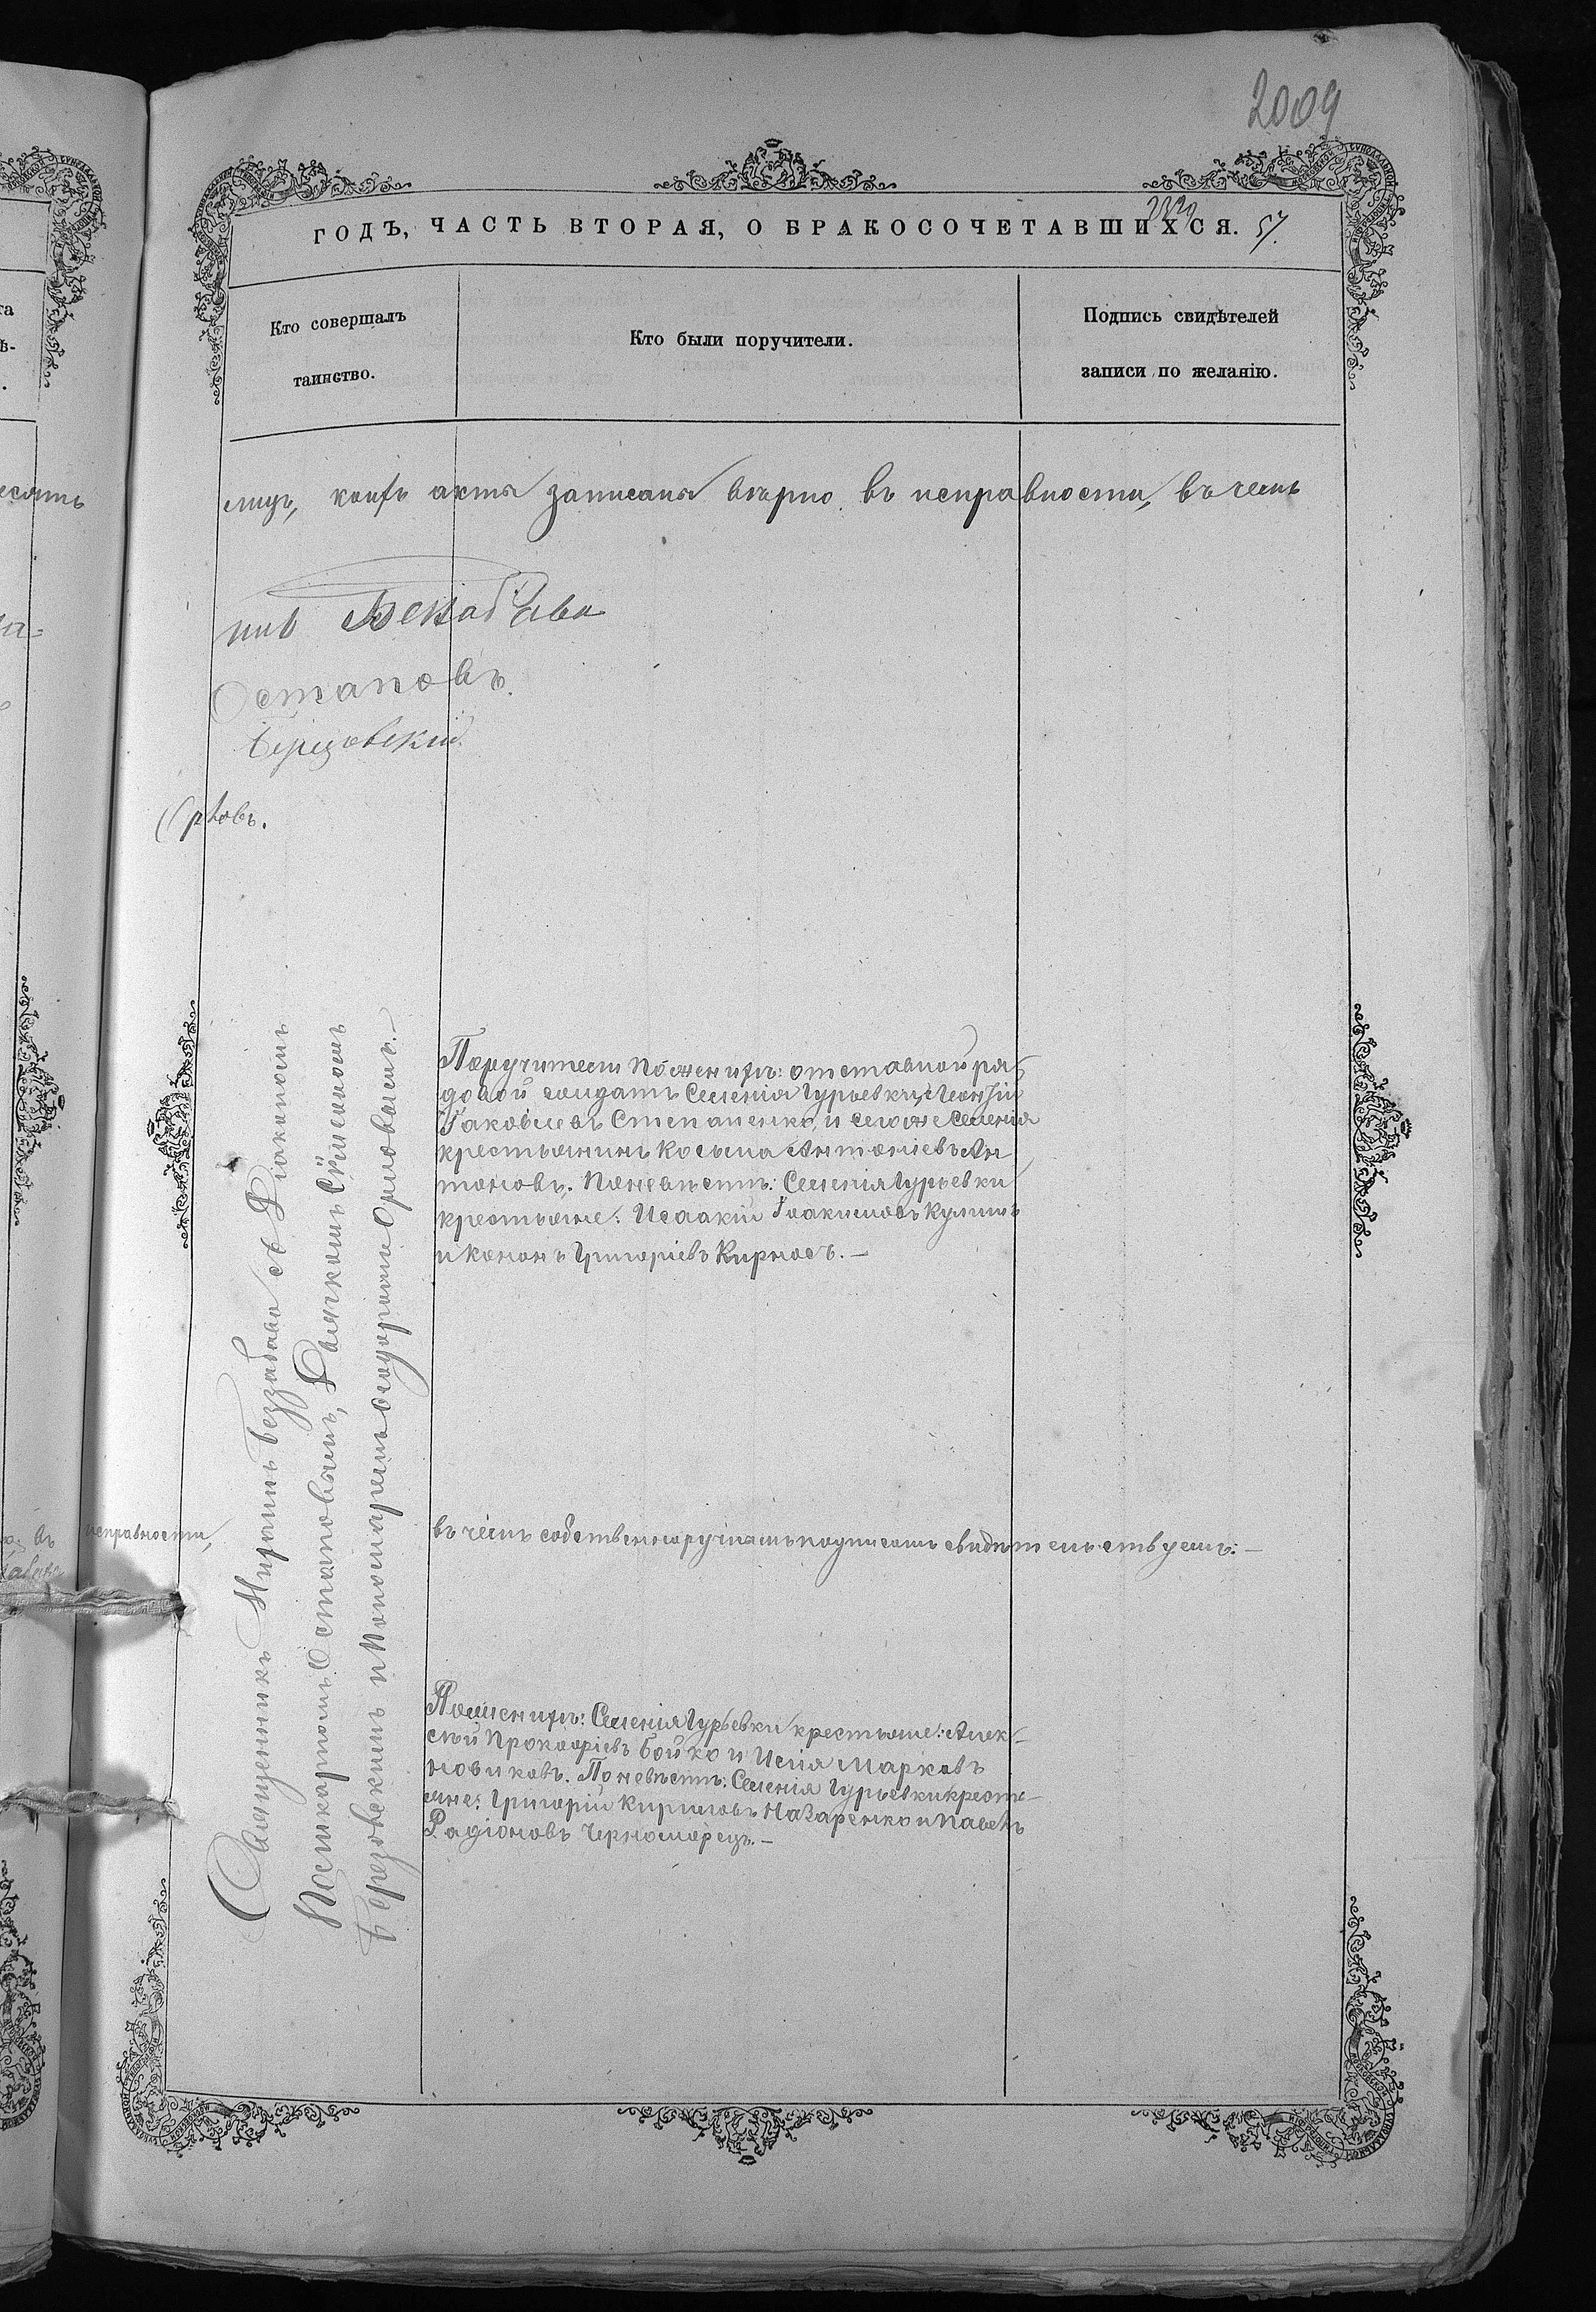 2009
ГОДЪ, ЧАСТЬ ВТОРАЯ, О БРАКОСОЧЕТАВШИХСЯ. 57.
Кто совершалъ
таинство.
Кто были поручители.
Подпись свидѣтелей
записи по желанію.
акты записаны вѣрно въ исправности, въ чемъ
Остаповъ.
исправности,
Священникъ Беззабава съ Діакономъ
Поликарпомъ Остаповымъ, Дьячкомъ Симеономъ
Березовскимъ и Пономаремъ Ѳеодоромъ Орловымъ.—
Поручители по женихѣ: отставной ря-
довой солдатъ Селенія Гурьевки,
Іаковлевъ Степаненко, и того же Селенія
крестьянинъ Косьма Антоніевъ Ан-
тоновъ. По невѣстѣ: Селенія Гурьевки
крестьяне: Исаакій Іоакимовъ Кулишъ
и Кононъ Григоріевъ Кирносъ.—
въ чемъ собственноручнымъ подписомъ свидѣтельствуемъ:—
По женихѣ: Селенія Гурьевки крестьяне: Алек-
сѣй Прокопіевъ Бойко и Исаія Марковъ
Новиковъ. По невѣстѣ: Селенія Гурьевки кресть-
яне: Григорій Кириловъ Назаренко и Павелъ
Радіоновъ Черноморецъ.—